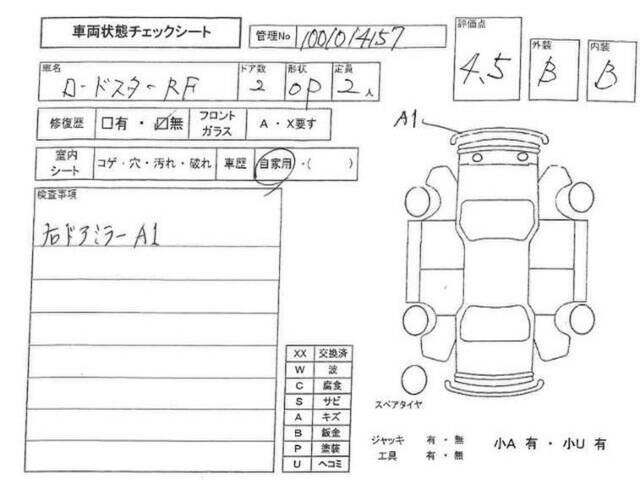 車両状態チェックシート
管理No 1001014157
評価点 4.5
外装 B
内装 B
車名 ロードスターRF
ドア数 2
形状 OP
定員 2人
修復歴 □有・☑無
フロントガラス A・X要す
室内シート コゲ・穴・汚れ・破れ
車歴 自家用・( )
検査事項
右ドアミラーA1
A1
XX 交換済
W 波
C 腐食
S サビ
A キズ
B 鈑金
P 塗装
U ヘコミ
スペアタイヤ
ジャッキ 有・無
工具 有・無
小A 有・小U 有